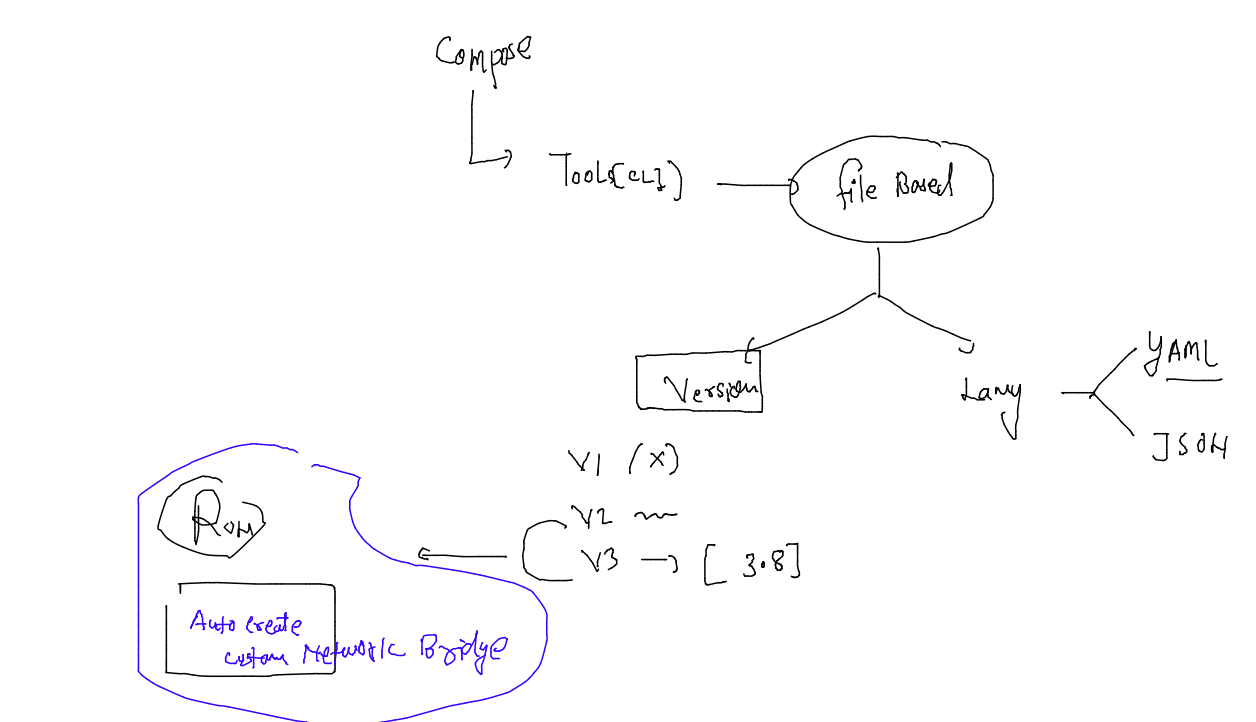 Compose
Tools[CLI)
file Based
Version
Lang
YAML
JSON
V1 (x)
V2
V3 → [ 3.8]
Auto create
custom Network Bridge